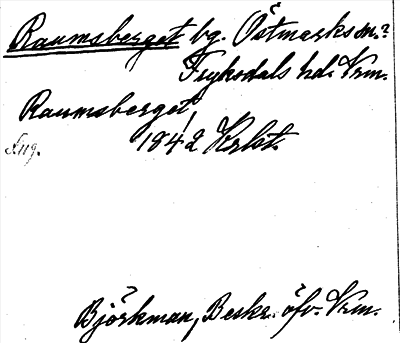 Raumsberget bg. Östmarks sn.?
Fryksdals hd. Vrm.
Raumsberget,
1842 Krbt.
Björkman, Beskr. öfv. Vrm.